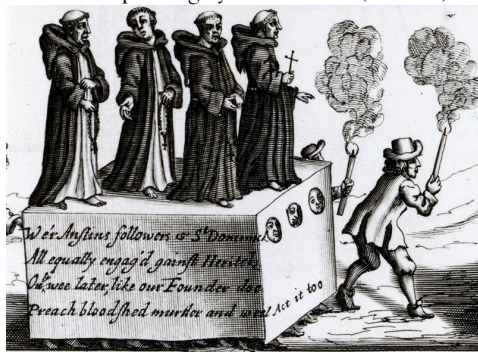 We'r Austins followers & St Dominick
All equally engag'd gainst Hereticks
Only wee later, like our Founder doe
Preach bloodshed murder and weal Act it too